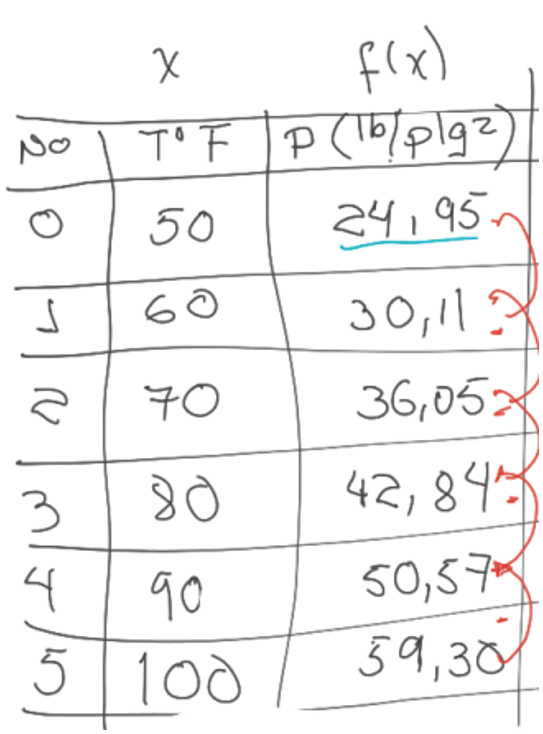 x f(x)
No T°F P (lb/plg²)
0 50 24,95
1 60 30,11
2 70 36,05
3 80 42,84
4 90 50,57
5 100 59,30